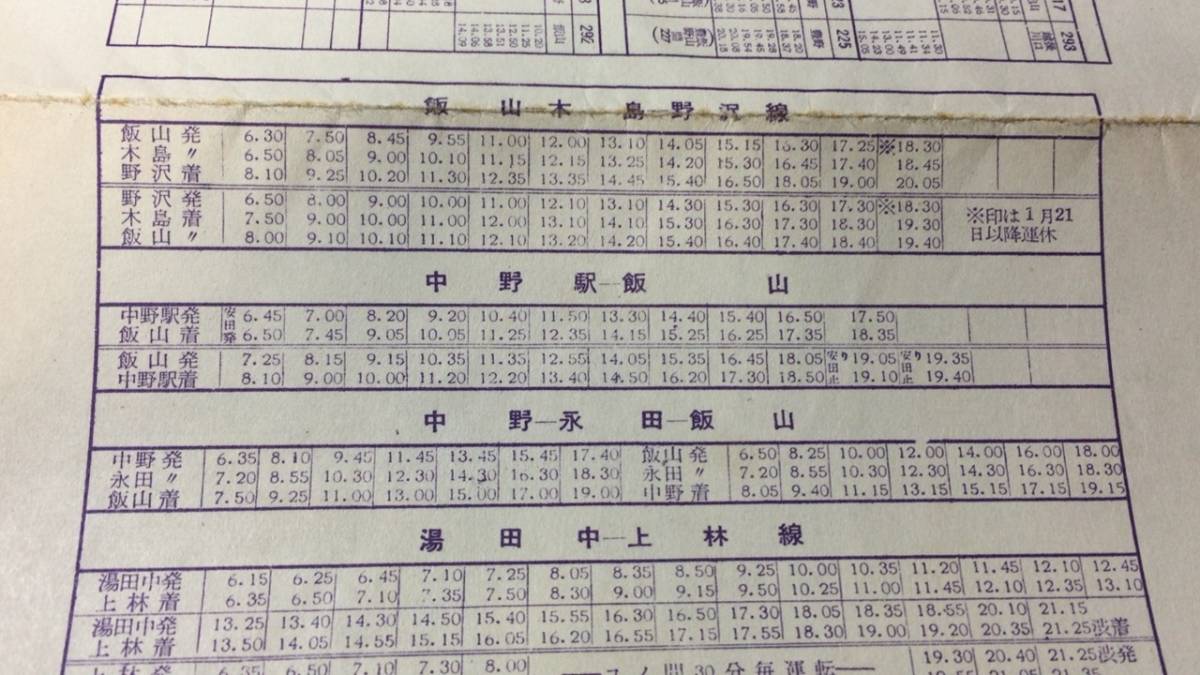 飯山木島野沢線
飯山発 6.30 7.50 8.45 9.55 11.00 12.00 13.10 14.05 15.15 16.30 17.25 ※18.30
木島〃 6.50 8.05 9.00 10.10 11.15 12.15 13.25 14.20 15.30 16.45 17.40 18.45
野沢着 8.10 9.25 10.20 11.30 12.35 13.35 14.45 15.40 16.50 18.05 19.00 20.05
野沢発 6.50 8.00 9.00 10.00 11.00 12.10 13.10 14.30 15.30 16.30 17.30 ※18.30
木島着 7.50 9.00 10.00 11.00 12.00 13.10 14.10 15.30 16.30 17.30 18.30 19.30
飯山〃 8.00 9.10 10.10 11.10 12.10 13.20 14.20 15.40 16.40 17.40 18.40 19.40
※印は1月21
日以降運休
中野駅—飯山
中野駅発 安田発 6.45 7.00 8.20 9.20 10.40 11.50 13.30 14.40 15.40 16.50 17.50
飯山着 6.50 7.45 9.05 10.05 11.25 12.35 14.15 15.25 16.25 17.35 18.35
飯山発 7.25 8.15 9.15 10.35 11.35 12.55 14.05 15.35 16.45 18.05 安田止り 19.05 安田止り 19.35
中野駅着 8.10 9.00 10.00 11.20 12.20 13.40 14.50 16.20 17.30 18.50 19.10 19.40
中野—永田—飯山
中野発 6.35 8.10 9.45 11.45 13.45 15.45 17.40 飯山発 6.50 8.25 10.00 12.00 14.00 16.00 18.00
永田〃 7.20 8.55 10.30 12.30 14.30 16.30 18.30 永田〃 7.20 8.55 10.30 12.30 14.30 16.30 18.30
飯山着 7.50 9.25 11.00 13.00 15.00 17.00 19.00 中野着 8.05 9.40 11.15 13.15 15.15 17.15 19.15
湯田中—上林線
湯田中発 6.15 6.25 6.45 7.10 7.25 8.05 8.35 8.50 9.25 10.00 10.35 11.20 11.45 12.10 12.45
上林着 6.35 6.50 7.10 7.35 7.50 8.30 9.00 9.15 9.50 10.25 11.00 11.45 12.10 12.35 13.10
湯田中発 13.25 13.40 14.30 14.50 15.40 15.55 16.30 16.50 17.30 18.05 18.35 18.55 20.10 21.15
上林着 13.50 14.05 14.55 15.15 16.05 16.20 16.55 17.15 17.55 18.30 19.00 19.20 20.35 21.25渋着
上林発 6.35 6.50 7.10 7.30 8.00 —コノ間30分毎運転— 19.30 20.40 21.25渋発